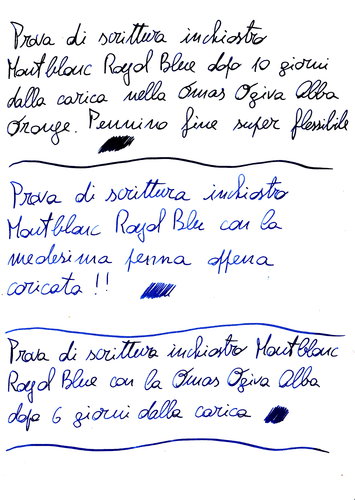 Prova di scrittura inchiostro
Montblanc Royal Blue dopo 10 giorni
dalla carica nella Omas Ogiva Alba
Orange. Pennino fine super flessibile
Prova di scrittura inchiostro
Montblanc Royal Blu con la
medesima penna appena
caricata !!
Prova di scrittura inchiostro Montblanc
Royal Blue con la Omas Ogiva Alba
dopo 6 giorni dalla carica